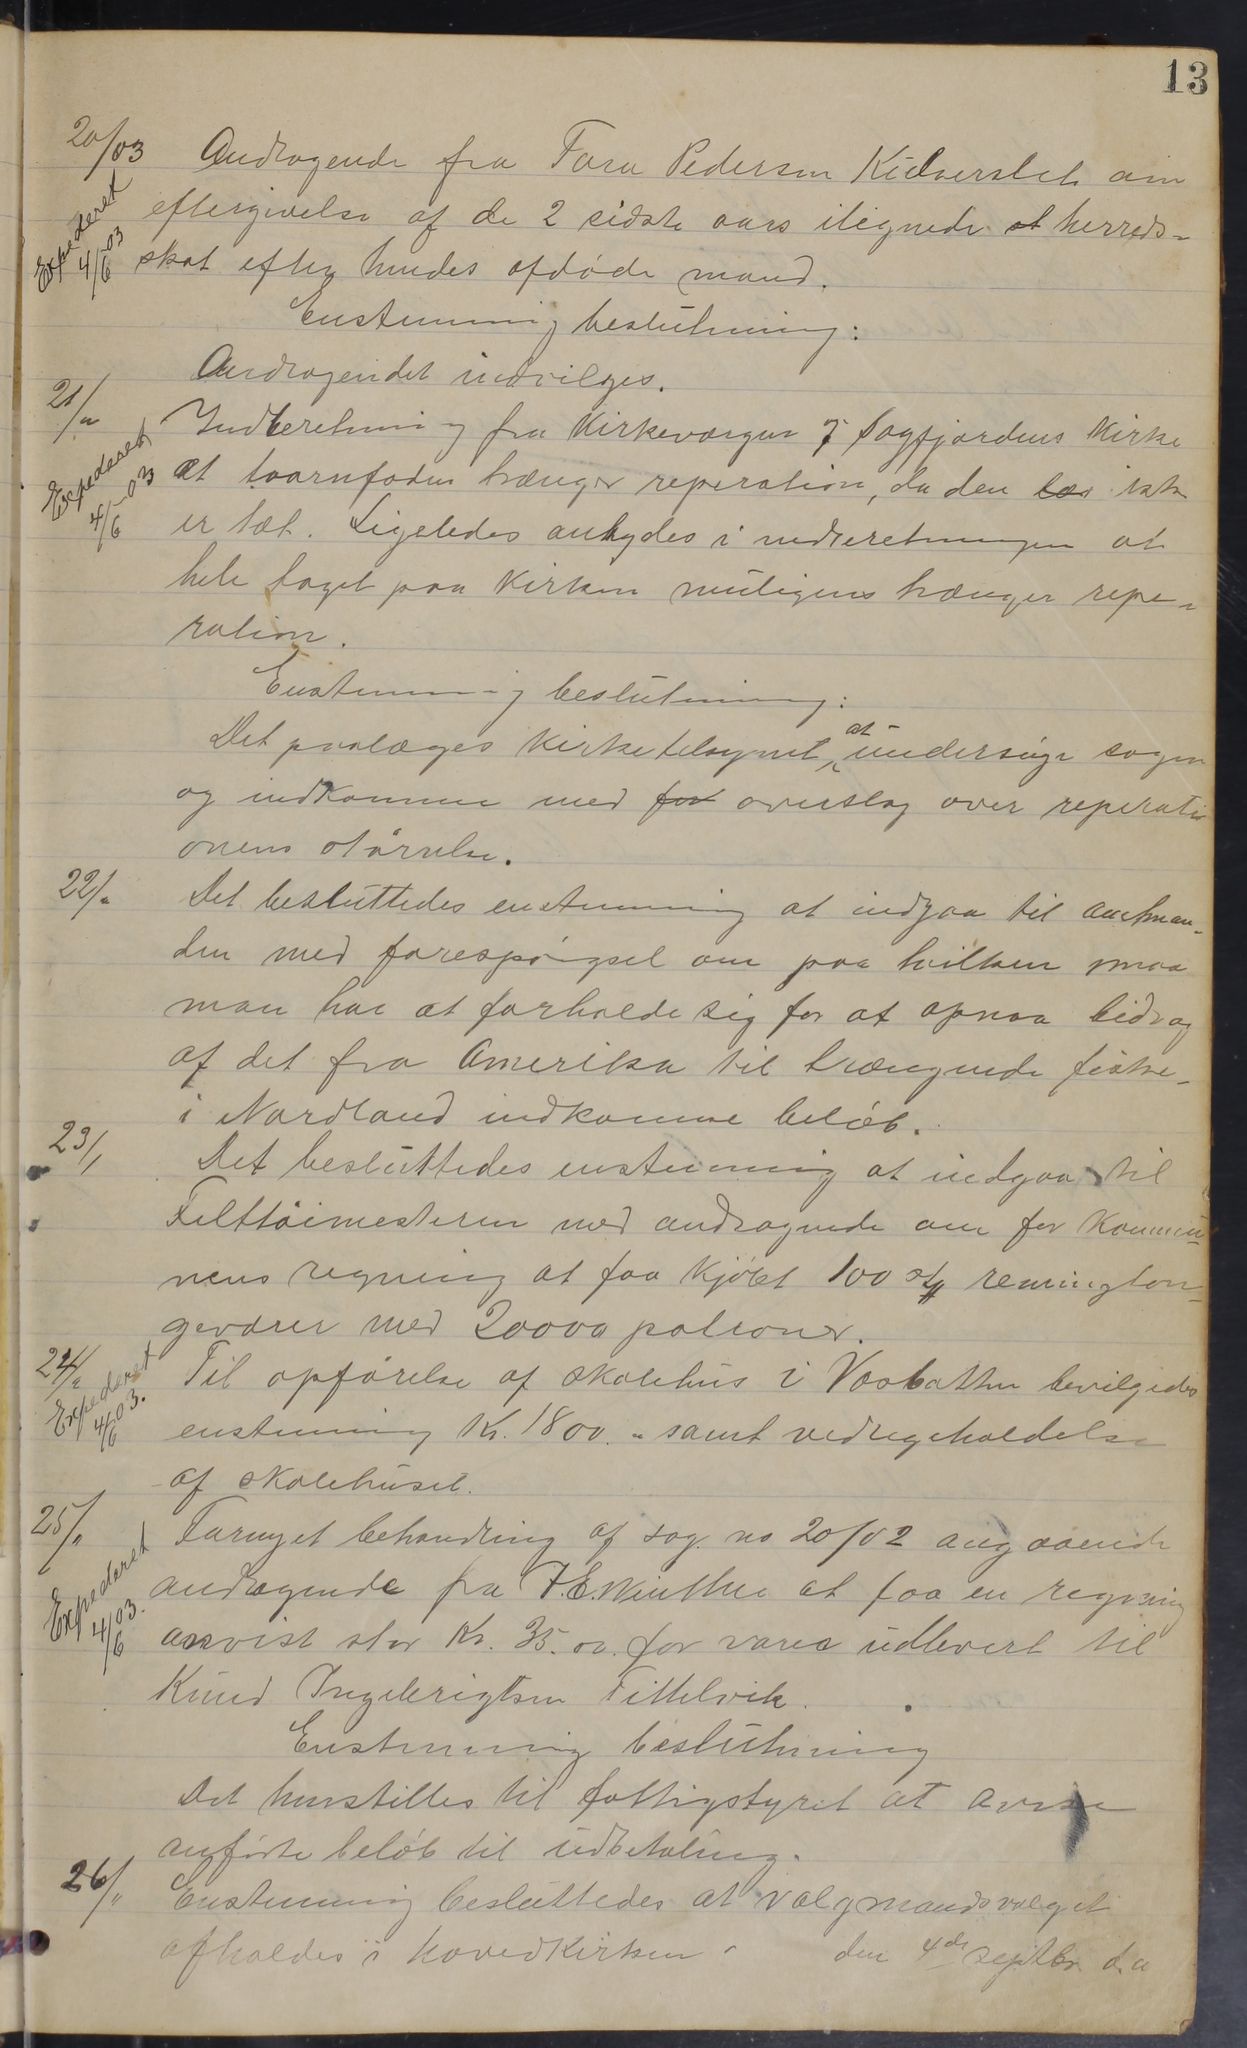 13
20/03 Andragende fra Tora Pedersen Kilverslet om
Expederet 4/6 03
eftergivelse af de 2 sidste aars ilignede at herreds-
skat efter hendes afdøde mand.
Enstemmig beslutning:
Andragendet indvilges.
21/"
Expederet 4/6-03
Indberetning fra Kirkevergen i Sagfjordens Kirke
at taarnfoden trænger reperation, da den ikke
er tæt. Ligeledes antydes i indberetningen at
hele taget paa Kirken muligens trænger repe-
ration.
Enstemmig beslutning:
Det paalægges Kirketilsynet, at undersøge sagen
og indkomme med for overslag over reperati
onens størrelse.
22/"
Det besluttedes enstemmig at indgaa til amtman-
den med forespørgsel om paa hvilken maa
man har at forholde sig for at opnaa bidrag
af det fra Amerika til trængende fiske-
i Nordland indkomne beløb.
23/"
Det besluttedes enstemmig at indgaa til
Felttøimesteren med andragende om for Kommu-
nens regning at faa kjøbt 100 stk remington-
geværer med 20000 patroner.
24/"
Expederet 4/6 03.
Til opførelse af skolehus i Vasbotten bevilgedes
enstemmig Kr. 1800. " samt vedligeholdelse
af skolehuset.
25/"
Expederet 4/6 03.
Fornyet behandling af sag no 20/02 angaaende
andragende fra J. E. Winther at faa en regning
anvist stor Kr. 35.00. for varer udlevert til
Knud Ingebrigtsen Tittelvik.
Enstemmig beslutning
Det henstilles til fattigstyret at avise
anførte beløb til udbetaling.
26/"
Enstemmig besluttedes at valgmandsvalget
afholdes i hovedkirken den 4de septbr d.a